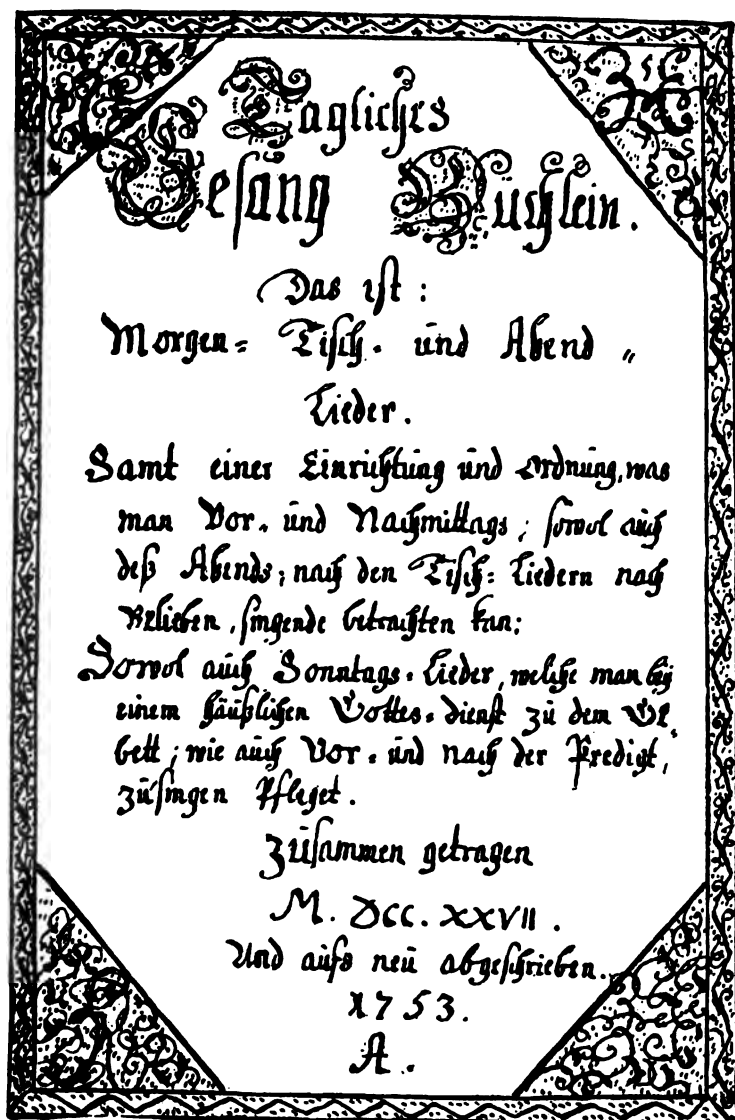 Tagliches
Gesang Büchlein.
Das ist:
Morgen= Tisch= und Abend =
Lieder.
Samt einer Einrichtung und Ordnung, was
man Vor= und Nachmittags; sowol auch
deß Abends; nach den Tisch= Liedern nach
Belieben, singende betrachten kan;
Sowol auch Sonntags= Lieder, welche man bey
einem häußlichen Gottes= dienst zu dem Ge=
bett; wie auch Vor= und nach der Predigt,
zu singen Pfleget.
Zusammen getragen
M. DCC. XXVII.
Und aufs neu abgeschrieben.
1753.
A.